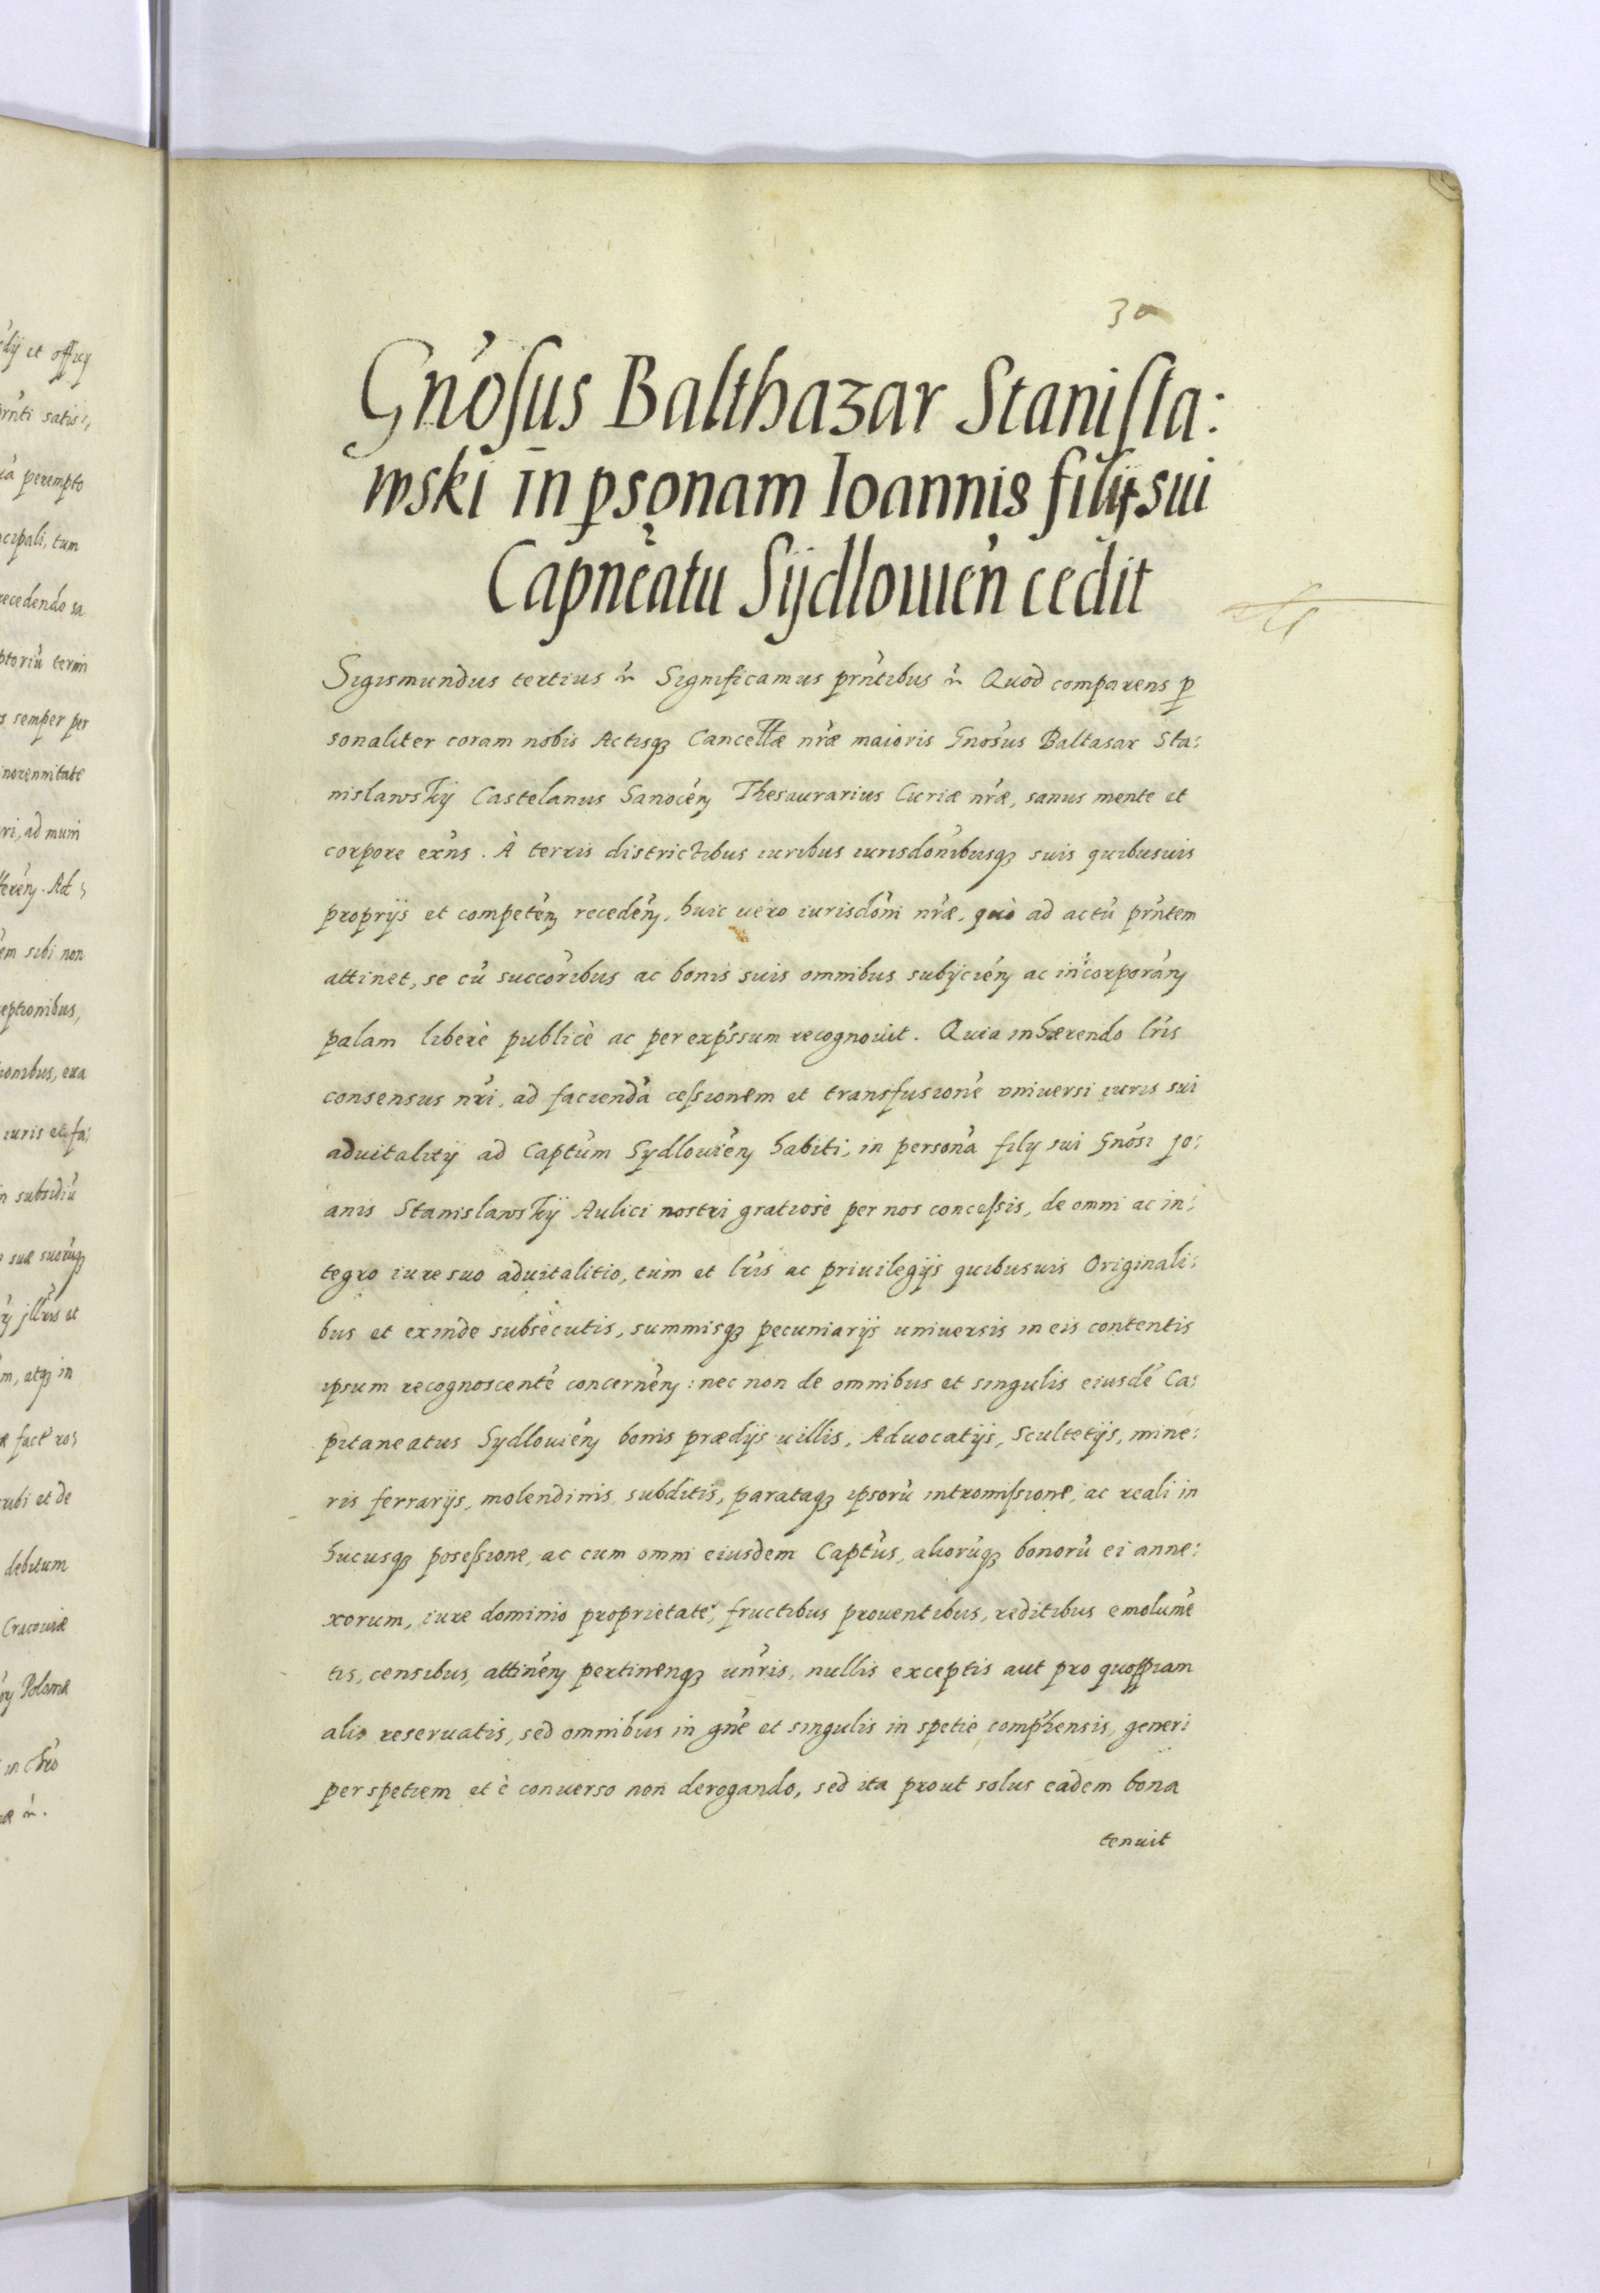 30
Gnósus Balthazar Stanisla:
wski in psonam Ioannis filij sui
Capneatu Sydlowień cedit
Sigismundus tertius &c Significamus prńtibus &c Quod comparens p
sonaliter coram nobis Actisq3 Cancellæ nŕæ maioris Gnosus Baltasar Sta:
nislawskÿ Castelanus Sanoceń Thesaurarius Curiæ nŕæ, sanus mente et
corpore exńs. À terris districtibus iuribus iurisdónibusq3 suis quibusuis
proprijs et competeń recedeń, huic uero iurisdóni nŕæ, quò ad actũ prńtem
attinet, se cũ succoribus ac bonis suis omnibus subijcień ac incorporań
palam liberè publicè ac per exprssum recognouit. Quia inhærendo lris
consensus nri, ad faciendã cessionem et transfusionẽ vniuersi iuris sui
aduitalitij ad Captum Sydlowień habiti, in personã filij sui Gnosi Jo:
anis Stanislawskÿ Aulici nostri gratiosè per nos concessis, de omni ac in:
tegro iure suo aduitalitio, tum et lris ac priuilegijs quibusuis Originali:
bus et exinde subsecutis, summisq3 pecuniarijs uniuersis in eis contentis
ipsum recognoscentẽ concerneń: nec non de omnibus et singulis eiusdẽ Ca:
pitaneatus Sydlouień bonis prædijs uillis, Aduocatijs, Scultetijs, mine:
ris ferrarijs, molendinis subditis, parataq3 ipsorũ intromissione, ac reali in
hucusq3 posessione, ac cum omni eiusdem Captus, aliorũq3 bonorũ ei anne:
xorum, iure dominio proprietate, fructibus prouentibus, reditibus emolumẽ
tis, censibus, attineń pertinenq3 unris, nullis exceptis aut pro quospiam
alio reseruatis, sed omnibus in gńe et singulis in spetie comphensis, generi
per spetiem et è conuerso non derogando, sed ita prout solus eadem bona
tenuit